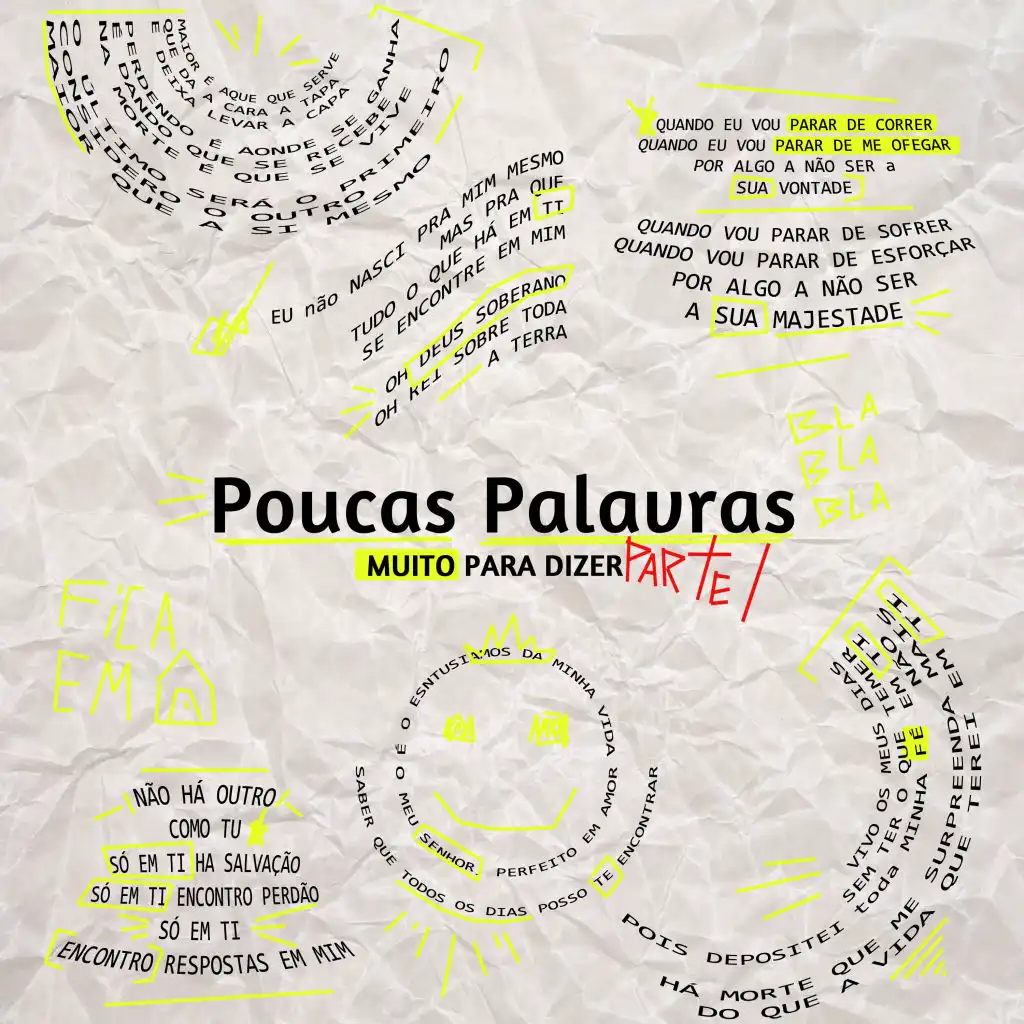 MAIOR É AQUE QUE SERVE
QUE DA A CARA A TAPA
E DEIXA LEVAR A CAPA
PERDENDO É AONDE SE GANHA
E DANDO QUE SE RECEBE
NA MORTE É QUE SE VIVE
O ULTIMO SERÁ O PRIMEIRO
CONSIDERO O OUTRO
MAIOR QUE A SI MESMO
QUANDO EU VOU PARAR DE CORRER
QUANDO EU VOU PARAR DE ME OFEGAR
POR ALGO A NÃO SER a
SUA VONTADE
QUANDO VOU PARAR DE SOFRER
QUANDO VOU PARAR DE ESFORÇAR
POR ALGO A NÃO SER
A SUA MAJESTADE
EU não NASCI PRA MIM MESMO
MAS PRA QUE
TUDO O QUE HÁ EM TI
SE ENCONTRE EM MIM
OH DEUS SOBERANO
OH REI SOBRE TODA
A TERRA
BLA
BLA
BLA
Poucas Palavras
MUITO PARA DIZER PARTE 1
FiCA
EM
NÃO HÁ OUTRO
COMO TU
SÓ EM TI HA SALVAÇÃO
SÓ EM TI ENCONTRO PERDÃO
SÓ EM TI
ENCONTRO RESPOSTAS EM MIM
É O ESNTUSIAMOS DA MINHA VIDA
O MEU SENHOR. PERFEITO EM AMOR
SABER QUE TODOS OS DIAS POSSO TE ENCONTRAR
SEM VIVO OS MEUS DIAS
SEM TER O QUE TEMER
POIS DEPOSITEI toda MINHA FÉ EM TI
HÁ MORTE QUE ME SURPREENDA EM
DO QUE A VIDA QUE TEREI
NÃO
MAIS
TI